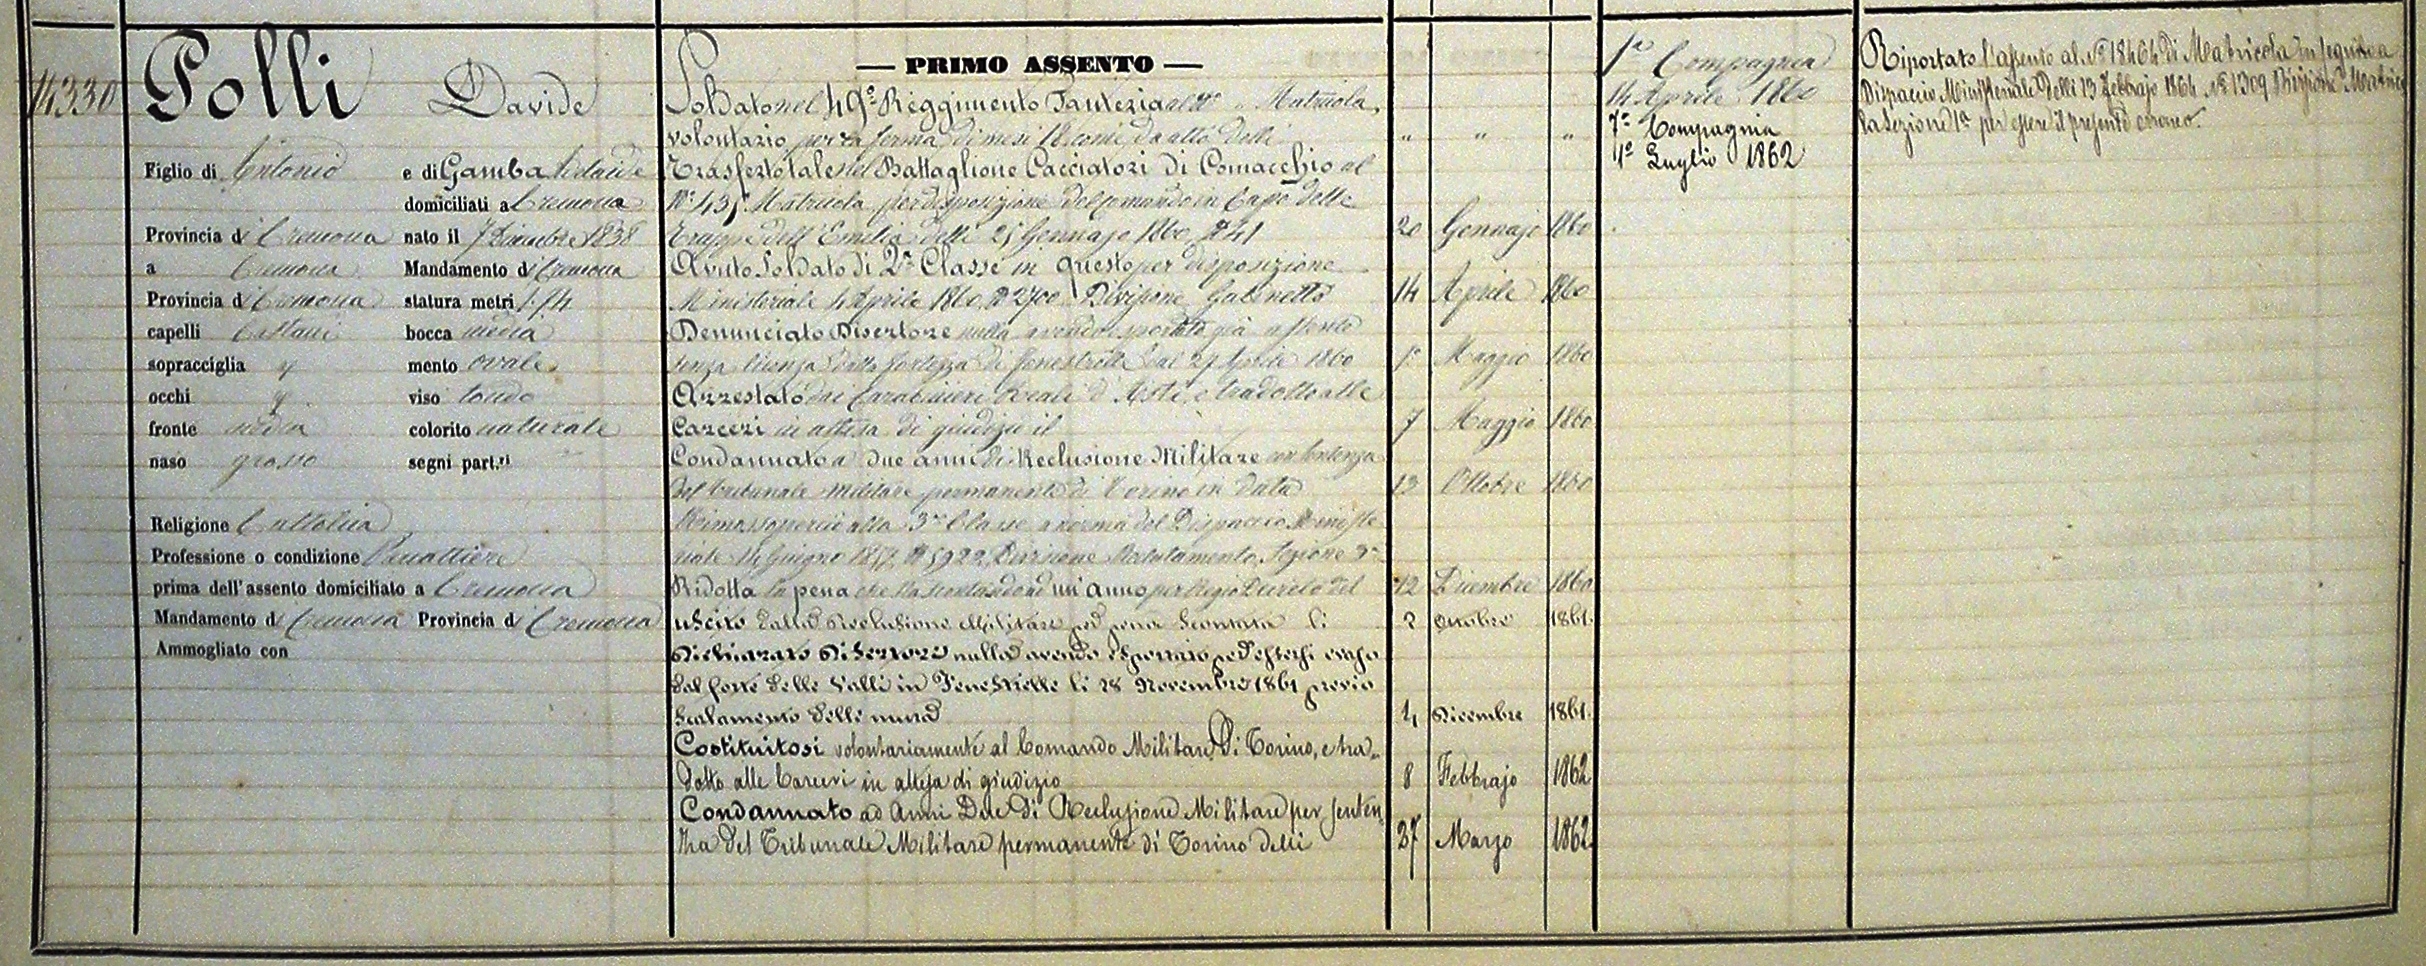 14330
Polli Davide
Figlio di Antonio e di Gamba Adelaide
domiciliati a Cremona
Provincia di Cremona nato il 7 Dicembre 1838
a Cremona Mandamento di Cremona
Provincia di Cremona statura metri 1.
capelli Castani bocca media
sopracciglia mento ovale
occhi viso tondo
fronte media colorito naturale
naso grosso segni part.ri "
Religione Cattolica
Professione o condizione
prima dell'assento domiciliato a Cremona
Mandamento di Cremona Provincia di Cremona
Ammogliato con
— PRIMO ASSENTO —
Soldato nel 49° Reggimento Fanteria al N° " Matricola,
volontario per la ferma di mesi 18 come da atto delli " " "
Trasferto tale nel Battaglione Cacciatori di Comacchio al
N° Matricola per disposizione del Comando in Capo delle
Truppe dell'Emilia delli 25 Gennajo 1860 N° 41 20 Gennajo 1860
Avuto Soldato di 2a Classe in questo per disposizione
Ministeriale 4 Aprile 1860 N° 2700 Divisione Gabinetto 14 Aprile 1860
Denunciato Disertore nulla avendo esportato già assente
senza licenza dalla fortezza di Fenestrelle dal 27 Aprile 1860 1° Maggio 1860
Arrestato dai Carabinieri Reali d'Asti e tradotto alle
Carceri in attesa di giudizio il 7 Maggio 1860
Condannato a due anni di Reclusione Militare con sentenza
del tribunale militare permanente di Torino in data 13 Ottobre 1860
alla 3a Classe a norma del Dispaccio Ministe
riale 14 Giugno 1857 N° 5922 Divisione Reclutamento, Sezione 3a
Ridotta la pena che sta scontando ad un'anno per Regio Decreto del 12 Dicembre 1860
uscito dalla Reclusione Militare per pena scontata li 2 Ottobre 1861.
Dichiarato Disertore nulla avendo esportato per essersi evaso
dal forte delle Valli in Fenestrelle li 28 Novembre 1861 previo
scalamento delle mura 4 Dicembre 1861.
Costituitosi volontariamente al Comando Militare Di Torino, e tra-
dotto alle Carceri in attesa di giudizio 8 Febbrajo 1862
Condannato ad Anni Due Di Reclusione Militare per senten
tza Del Tribunale Militare permanente di Torino delli 27 Marzo 1862
1a Compagnia
14 Aprile 1860
7a Compagnia
1° Luglio 1862
Riportato l'assento al N° 18464 di Matricola in seguito a
Dispaccio Ministeriale delli 13 Febbrajo 1864 N° 1309 Divisione Matrico
la Sezione 1a per essere il presente erroneo.